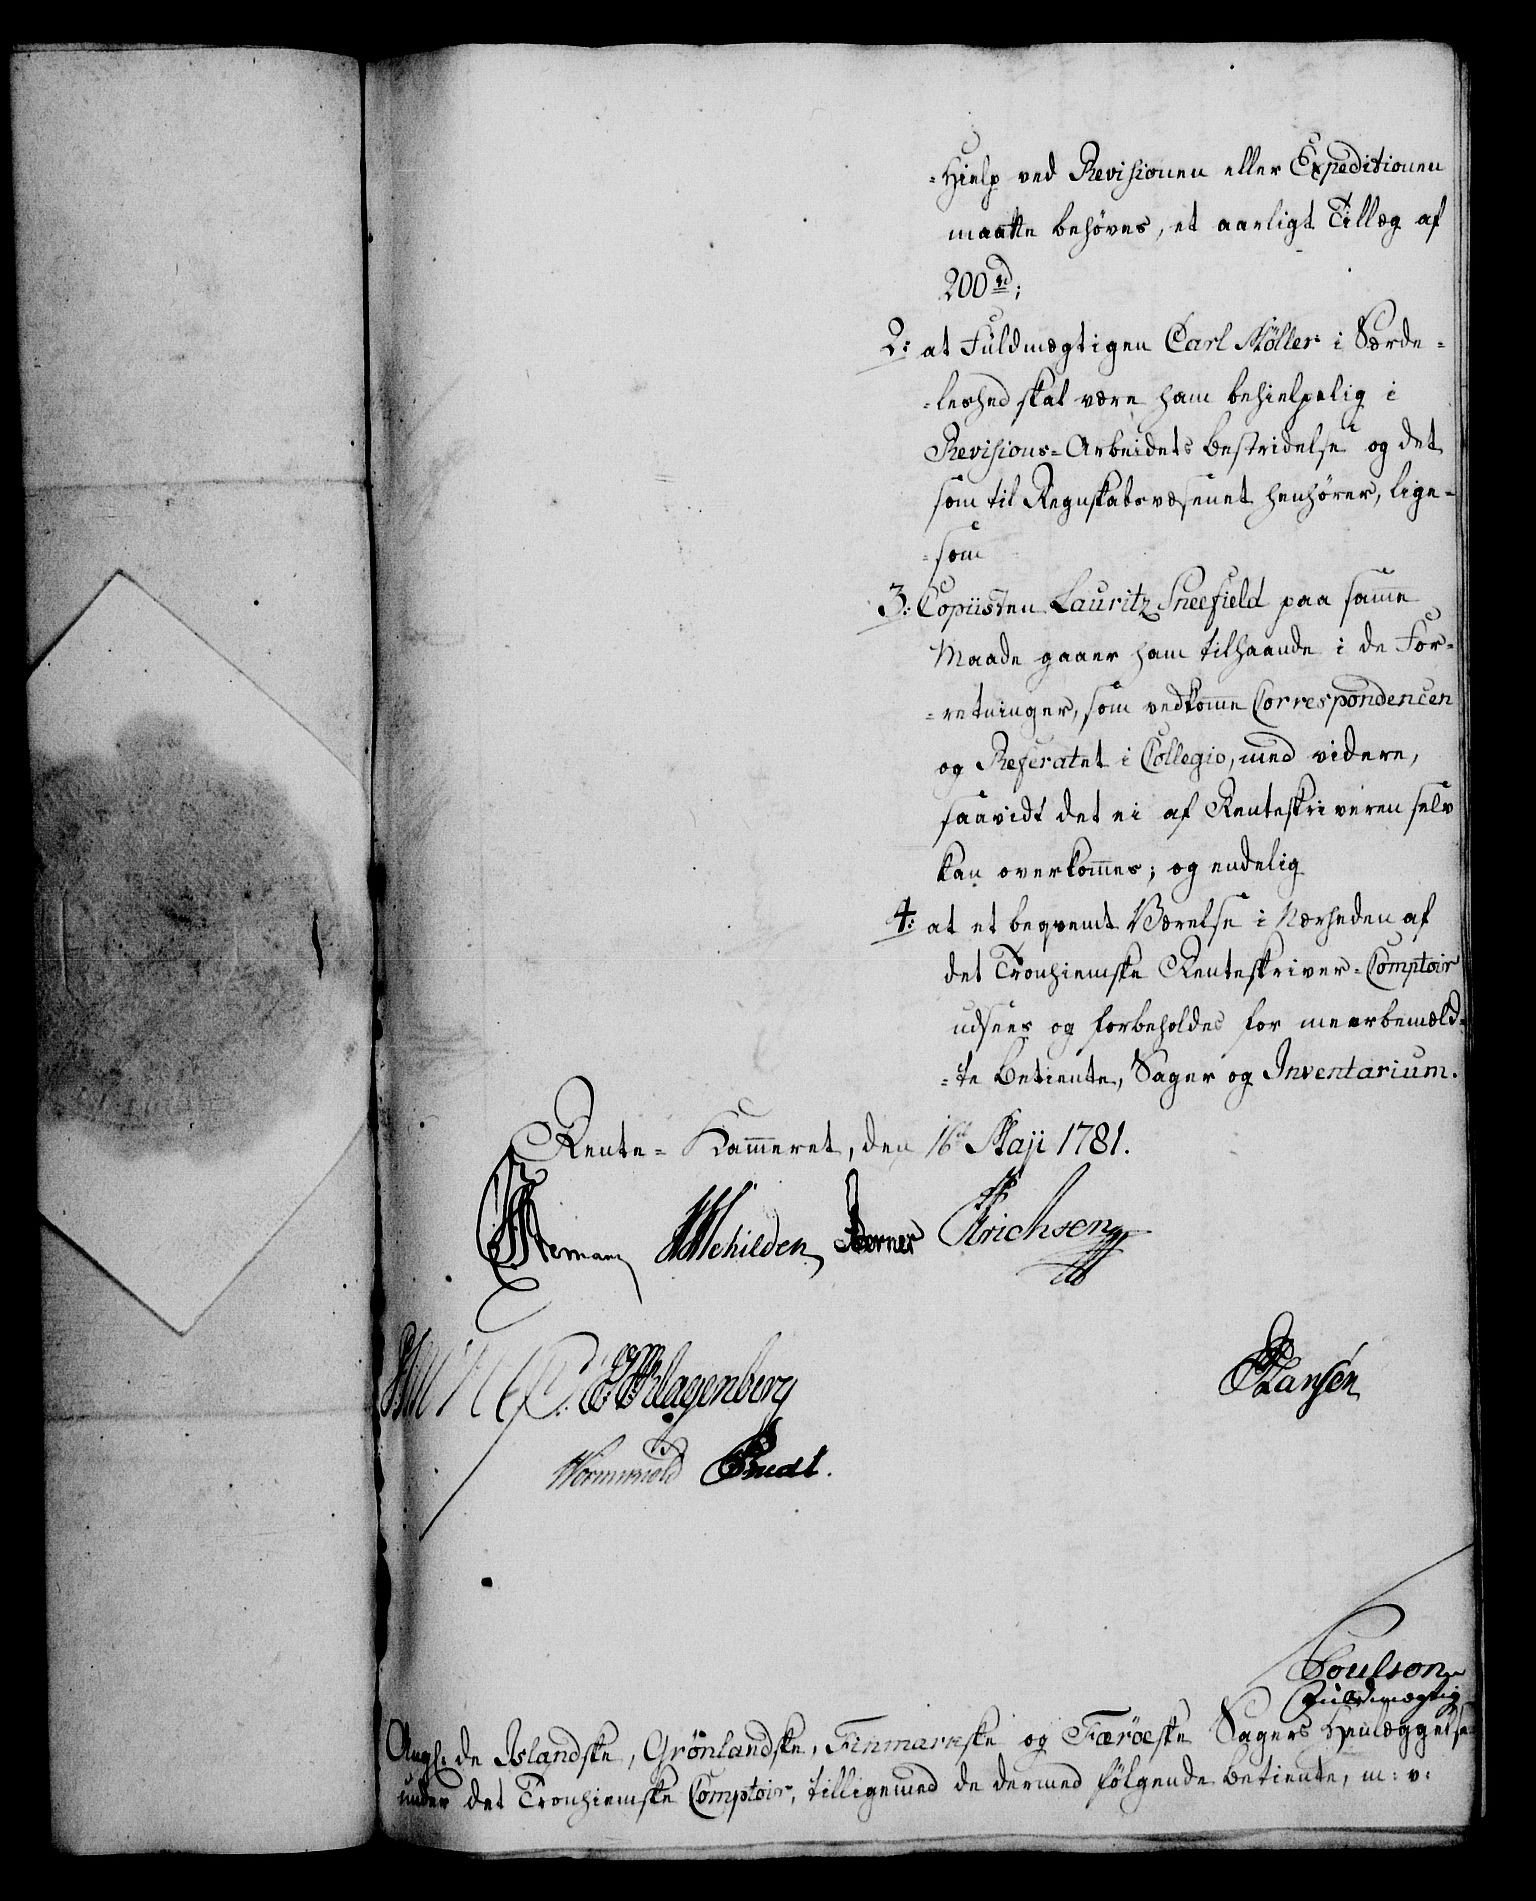 -Hielp ved Revisionen eller Expeditionen
maatte behøves, et aarligt Tillæg af
200 rd;
2: at Fuldmægtigen Carl Møller i Særde-
-leshed skal være ham behielpelig i
Revisions-Arbeidets Bestridelse og det
som til Regnskabsvæsenet henhører, lige-
-som
3: Copiisten Lauritz Sneefield paa samme
Maade gaaer ham tilhaande i de For-
-retninger, som vedkomme Correspondencen
og Referatet i Collegio, med videre,
saavidt det ei af Renteskriveren selv
kan overkommes; og endelig
4: at et beqvemt Værelse i Nærheden af
det Tronhiemske Renteskriver-Comptoir
udsees og forbeholdes for meerbemeld-
-te Betiente, Sager og Inventarium.
Rente-Kammeret, den 16de Maji 1781.
Stemann Schilden Berner Erichsen
Klagenberg Hansen
Wormskiold
Poulson
Fuldmægtig
Angl: de Islandske, Grönlandske, Finmarkske og Færöeske Sagers Henlæggelse
under det Tronhiemske Comptoir, tilligemed de dermed fölgende Betiente, m: v: